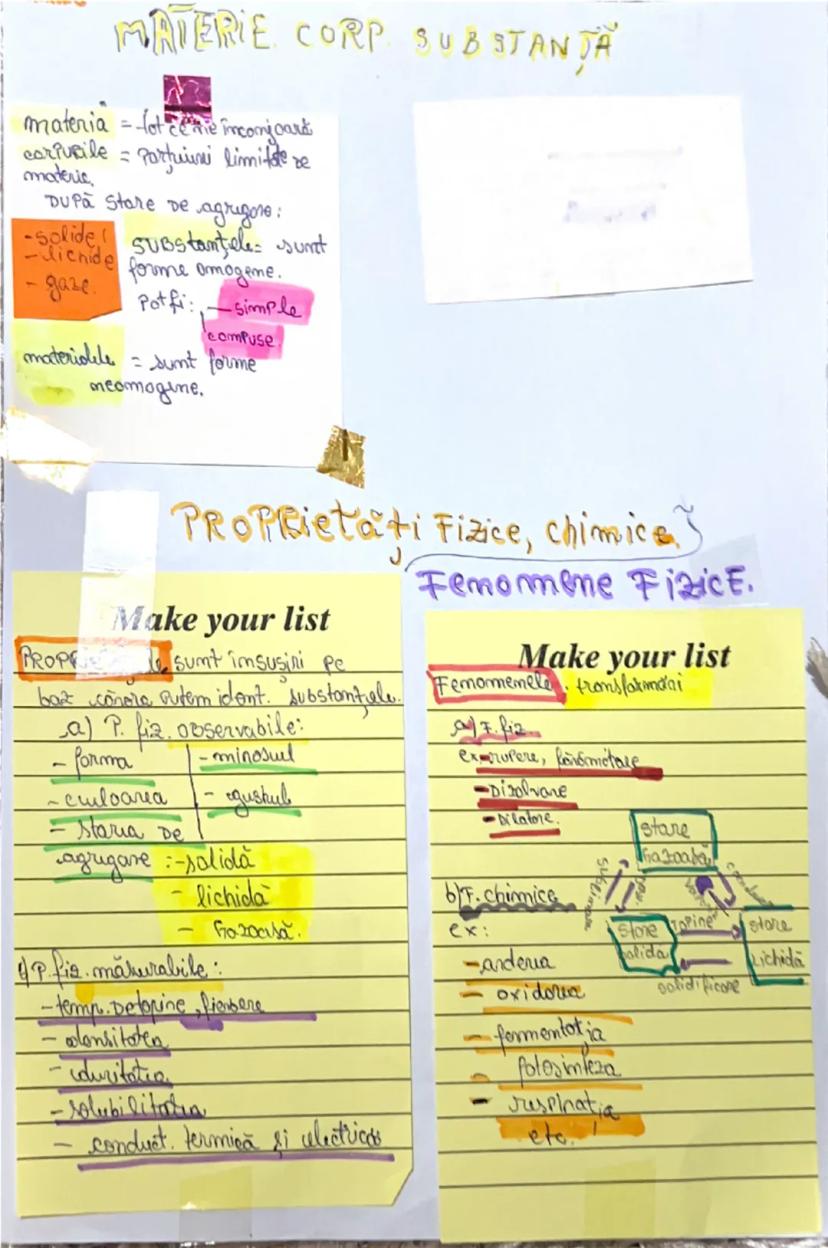 MATERIE. CORP. SUBSTANȚĂ
materia = tot ce ne înconjoară
corpurile = porțiuni limitate de
materie.
DUPĂ stare de agregare:
- solide!
- lichide
- gaze.
SUBstanțele = sunt
forme omogene.
Pot fi: - simple
compuse.
materialele = sunt forme
neomogene.
PROPRietăți Fizice, chimice.
Fenomene FizicE.
Make your list
PROPRietățile sunt însușiri pe
baz cărora putem ident. substanțele.
a) P. fiz. observabile:
- forma
- mirosul
- culoarea
- gustul
- starea de
agregare :- solidă
- lichidă
- Gazoasă.
P. fiz. măsurabile:
- temp. De topire, fierbere
- densitatea
- duritatea
- solubilitatea
- conduct. termică și electrică
Make your list
Fenomenele. transformări
a) F. fiz.
ex- rupere, fărâmițare
- Dizolvare
- Dilatare.
stare
Gazoasă
b) F. chimice
ex:
store
solida
topire
stare
Lichidă
solidificare
- arderea
- oxidarea
- fermentația
- fotosinteza
- respirația
etc. !